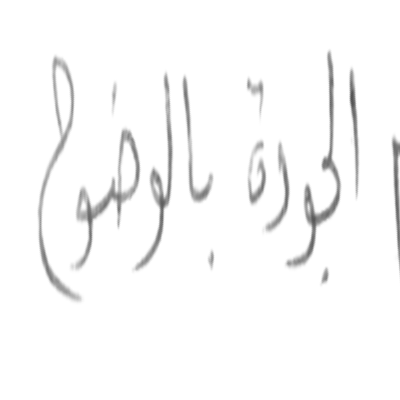 الجودة بالوضوح